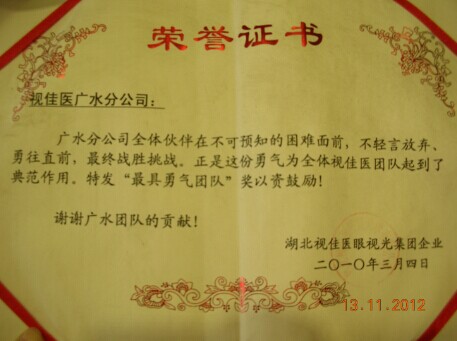 荣誉证书
视佳医广水分公司：
广水分公司全体伙伴在不可预知的困难面前，不轻言放弃、
勇往直前，最终战胜挑战。正是这份勇气为全体视佳医团队起到了
典范作用。特发“最具勇气团队”奖以资鼓励！
谢谢广水团队的贡献！
湖北视佳医眼视光集团企业
二〇一〇年三月四日
13.11.2012